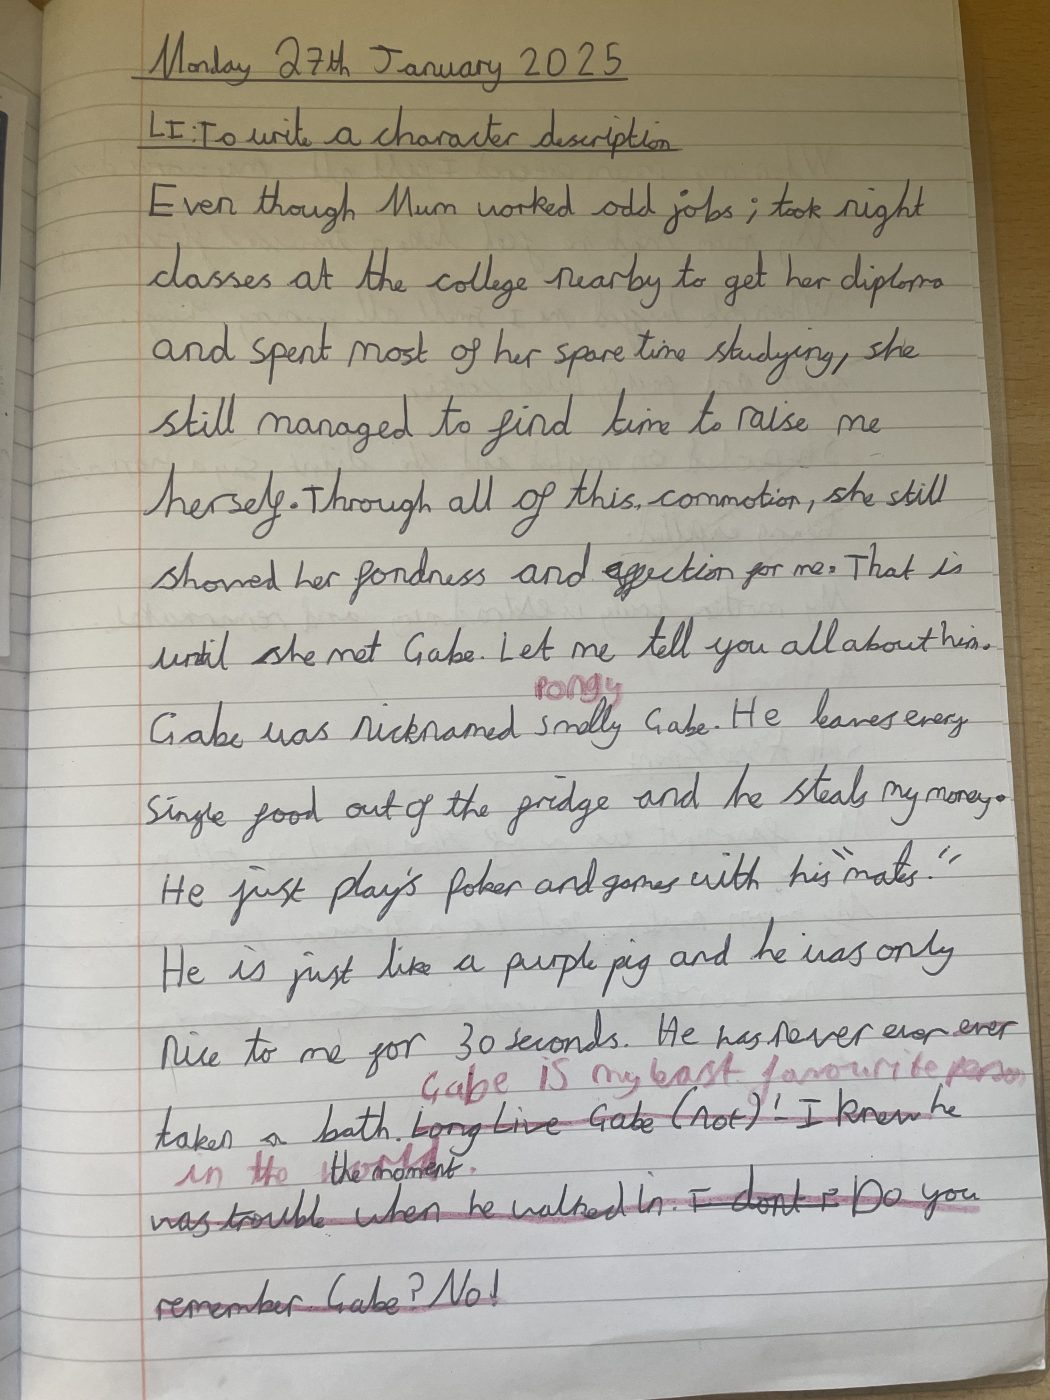 Monday 27th January 2025
LI: To write a character description
Even though Mum worked odd jobs ; took night
classes at the college nearby to get her diploma
and spent most of her spare time studying, she
still managed to find time to raise me
herself. Through all of this, commotion, she still
showed her fondness and affection for me. That is
until she met Gabe. Let me tell you all about him.
pongy
Gabe was nicknamed smelly Gabe. He leaves every
single food out of the fridge and he steals my money.
He just play's poker and games with his "mates."
He is just like a purple pig and he was only
nice to me for 30 seconds. He has never ever ever
Gabe is my least favourite person
taken a bath. Long Live Gabe (not)! I knew he
in the world.
the moment
was trouble when he walked in. I dont Do you
remember Gabe? No!